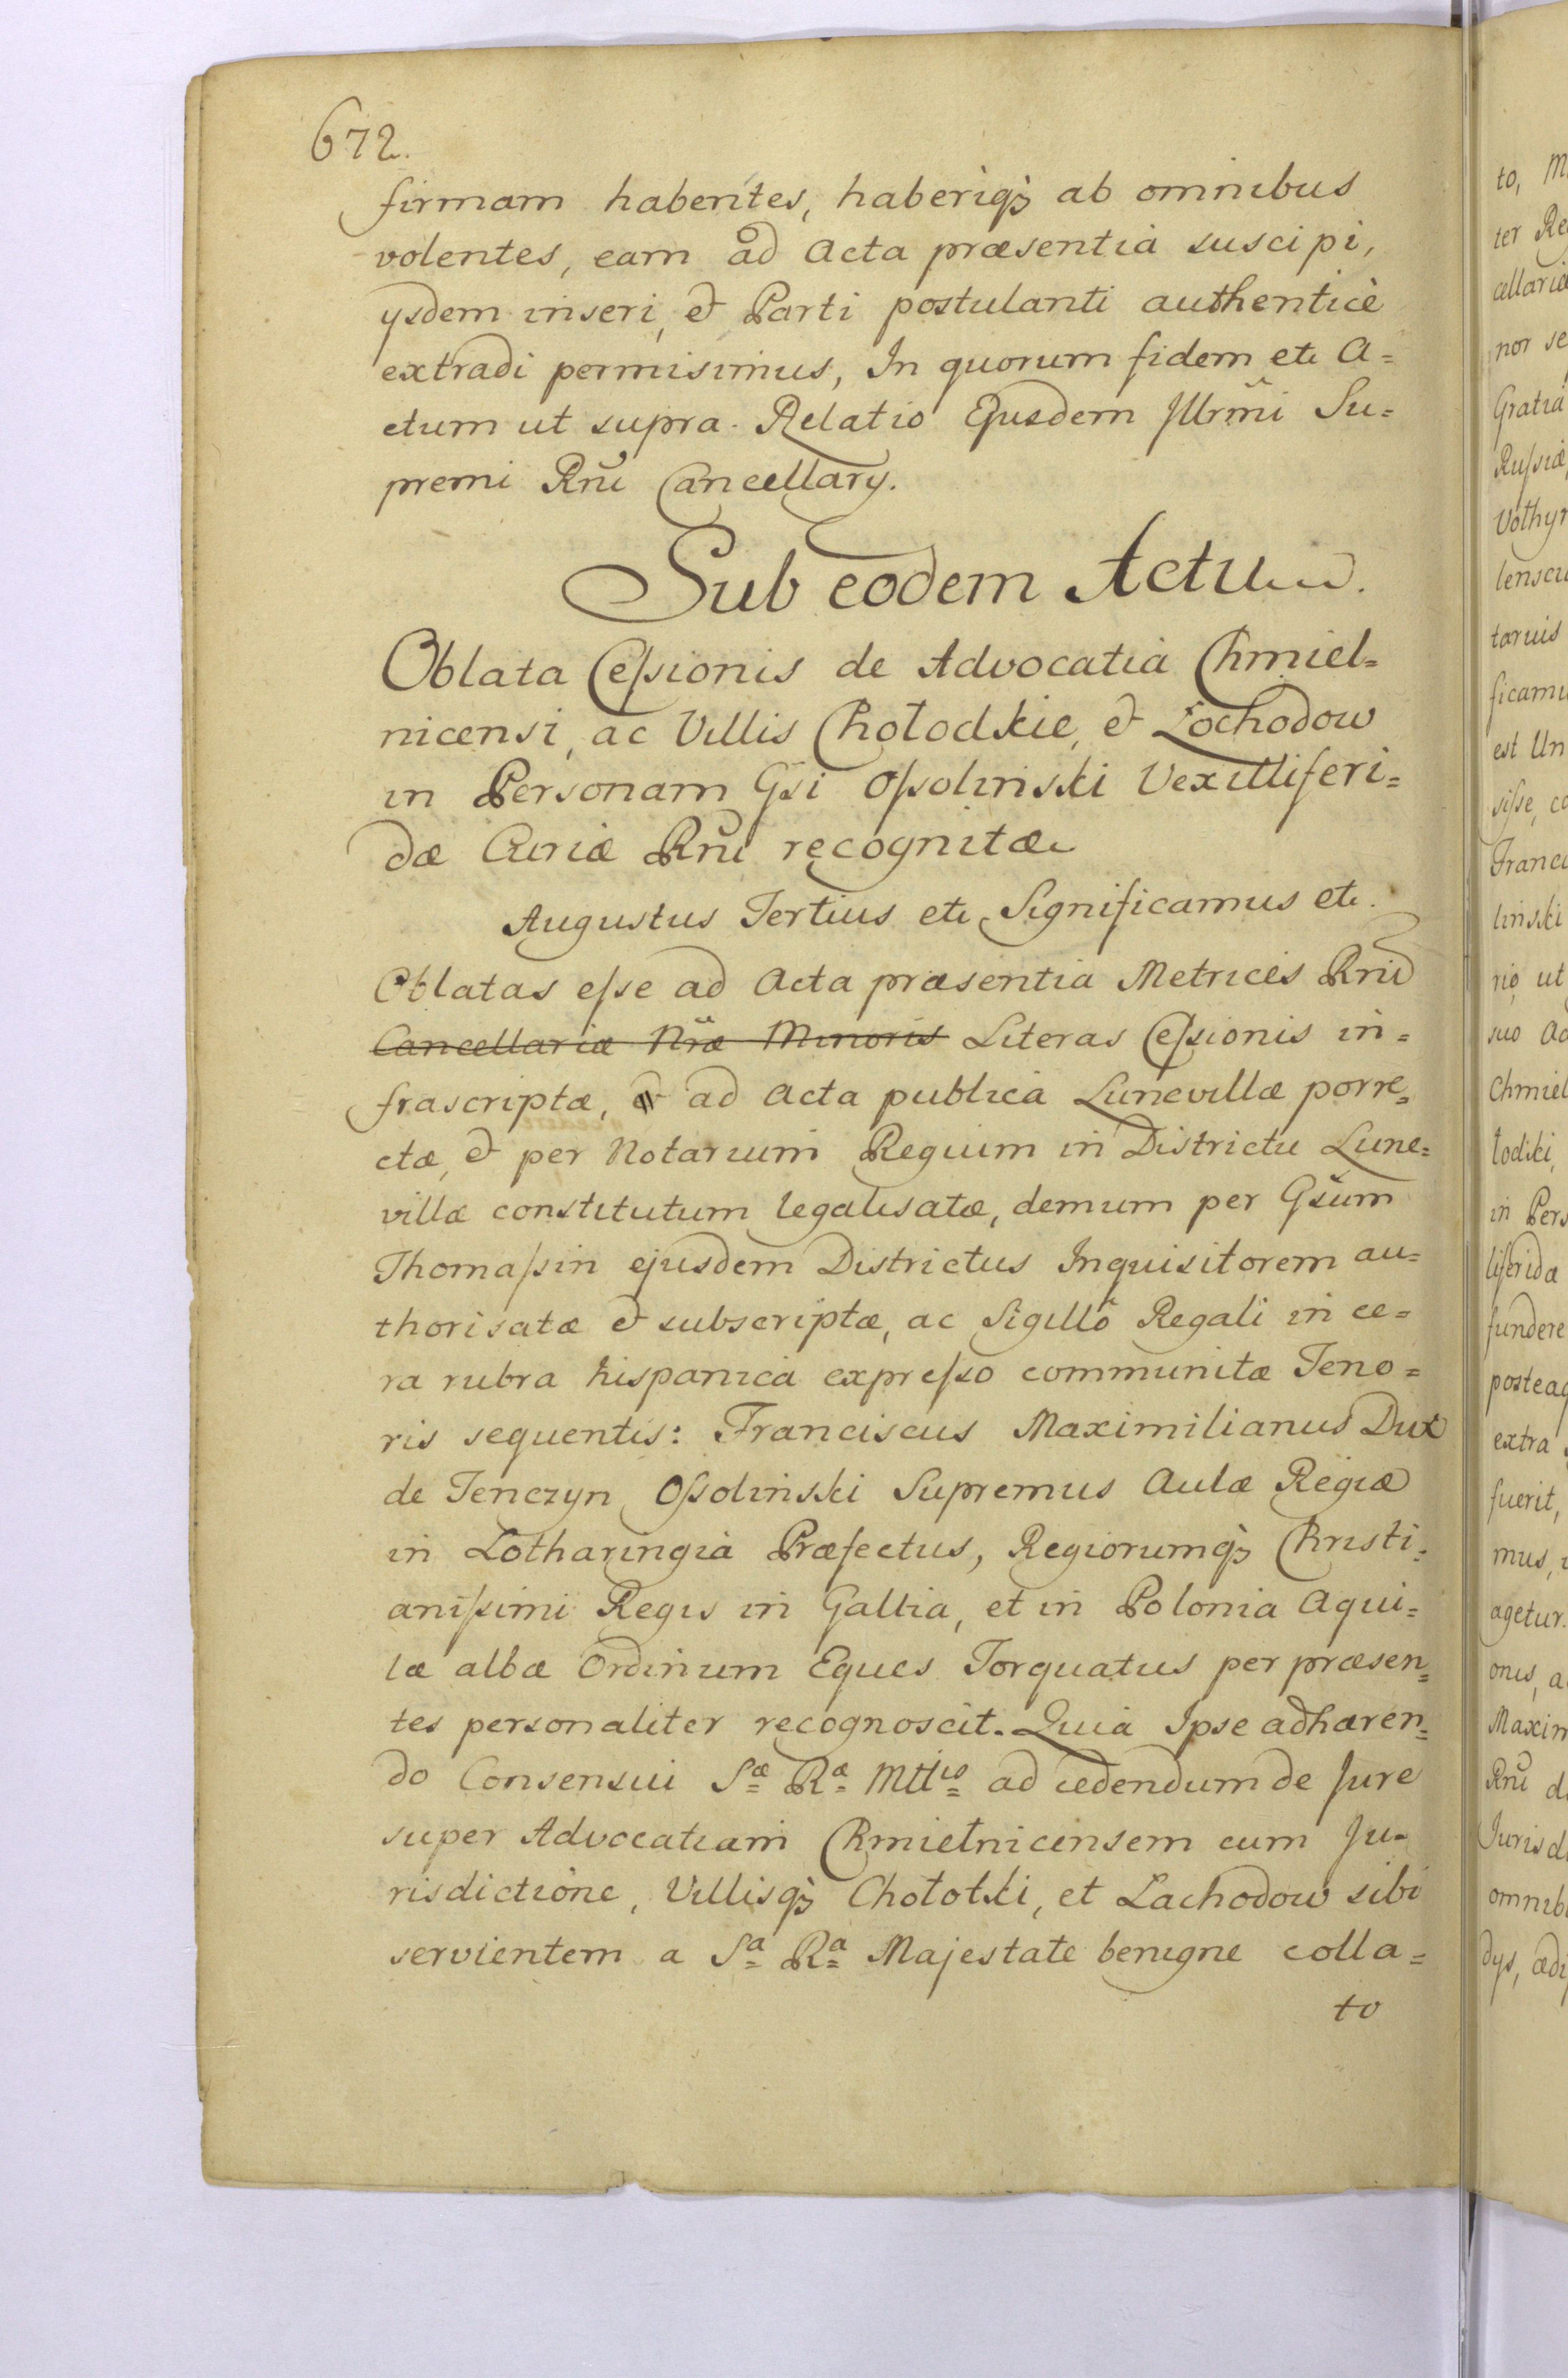 672.
firmam habentes, haberiq; ab omnibus
volentes, eam ad Acta præsentia suscipi,
ijsdem inseri, & Parti postulanti authenticè
extradi permisimus, In quorum fidem etc A=
ctum ut supra. Relatio Ejusdem Illrmi Su=
premi Rni Cancellarij.
Sub eodem Actu.
Oblata Cessionis de Advocatia Chmiel=
nicensi, ac Villis Chołodkie, & Łochodow
in Personam Gsi Ossoliński Vexilliferi=
dæ Curiæ Rni recognitæ
Augustus Tertius etc Significamus etc.
Oblatas esse ad Acta præsentia Metrices Rni
Cancellariæ Nræ Minoris Literas Cessionis in=
frascriptæ, & ad Acta publica Lunevillæ porre=
ctæ, & per Notarium Regium in Districtu Lune=
villæ constitutum legalisatæ, demum per Gsum
Thomassin ejusdem Districtus Inquisitorem au=
thorisatæ & subscriptæ, ac Sigillô Regali in ce=
ra rubra hispanica expresso communitæ Teno=
ris sequentis: Franciscus Maximilianus Dux
de Tenczyn Ossoliński Supremus Aulæ Regiæ
in Lotharingia Præfectus, Regiorumq; Christi=
anissimi Regis in Gallia, et in Polonia Aqui=
læ albæ Ordinum Eques Torquatus per præsen=
tes personaliter recognoscit. Quia Ipse adhæren=
do Consensui Sæ Ræ Mttis ad cedendum de Jure
super Advocatiam Chmielnicensem cum Ju=
risdictione, Villisq; Chołotki, et Lachodow sibi
servientem a Sa Ra Majestate benigne colla=
to
to, M
ter Re
cellariæ
nor se
Gratia
Russiæ
Volhyn
lensci
taruis
ficamu
est Un
sisse, co
Franci
liński
rio ut
suo Ad
Chmiel
łodki,
in Pers
liferidæ
fundere
posteaq
extra
fuerit,
mus,
agetur.
onis, a
Maxim
Rni d
Juris d
omnib
dijs, ædi